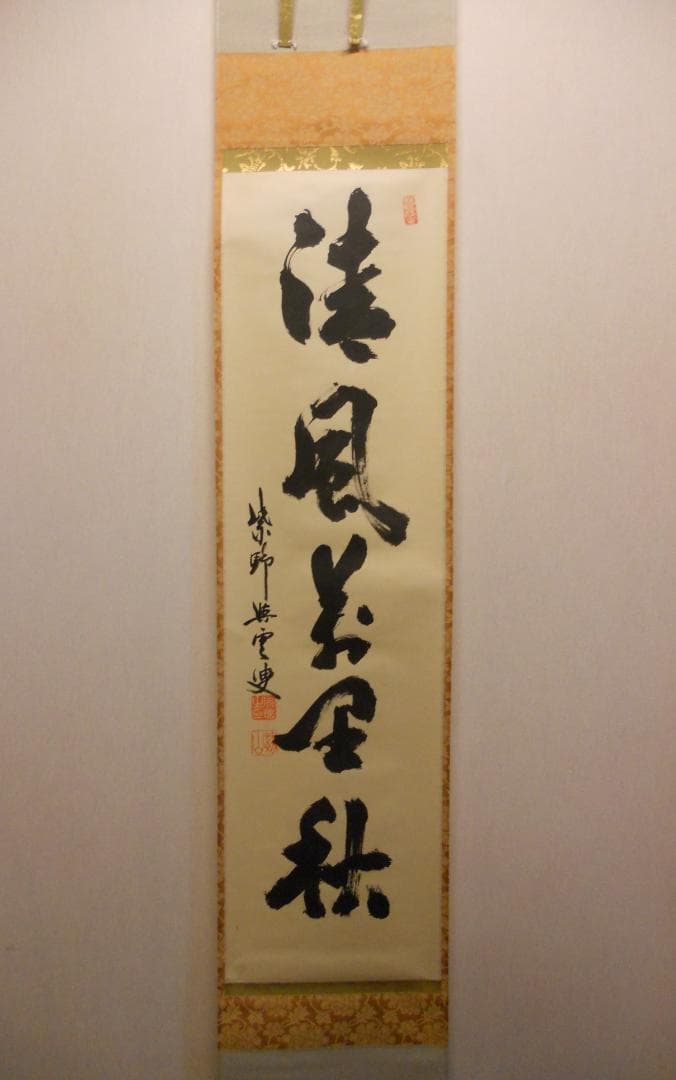 清風萬里秋
紫野 雲叟